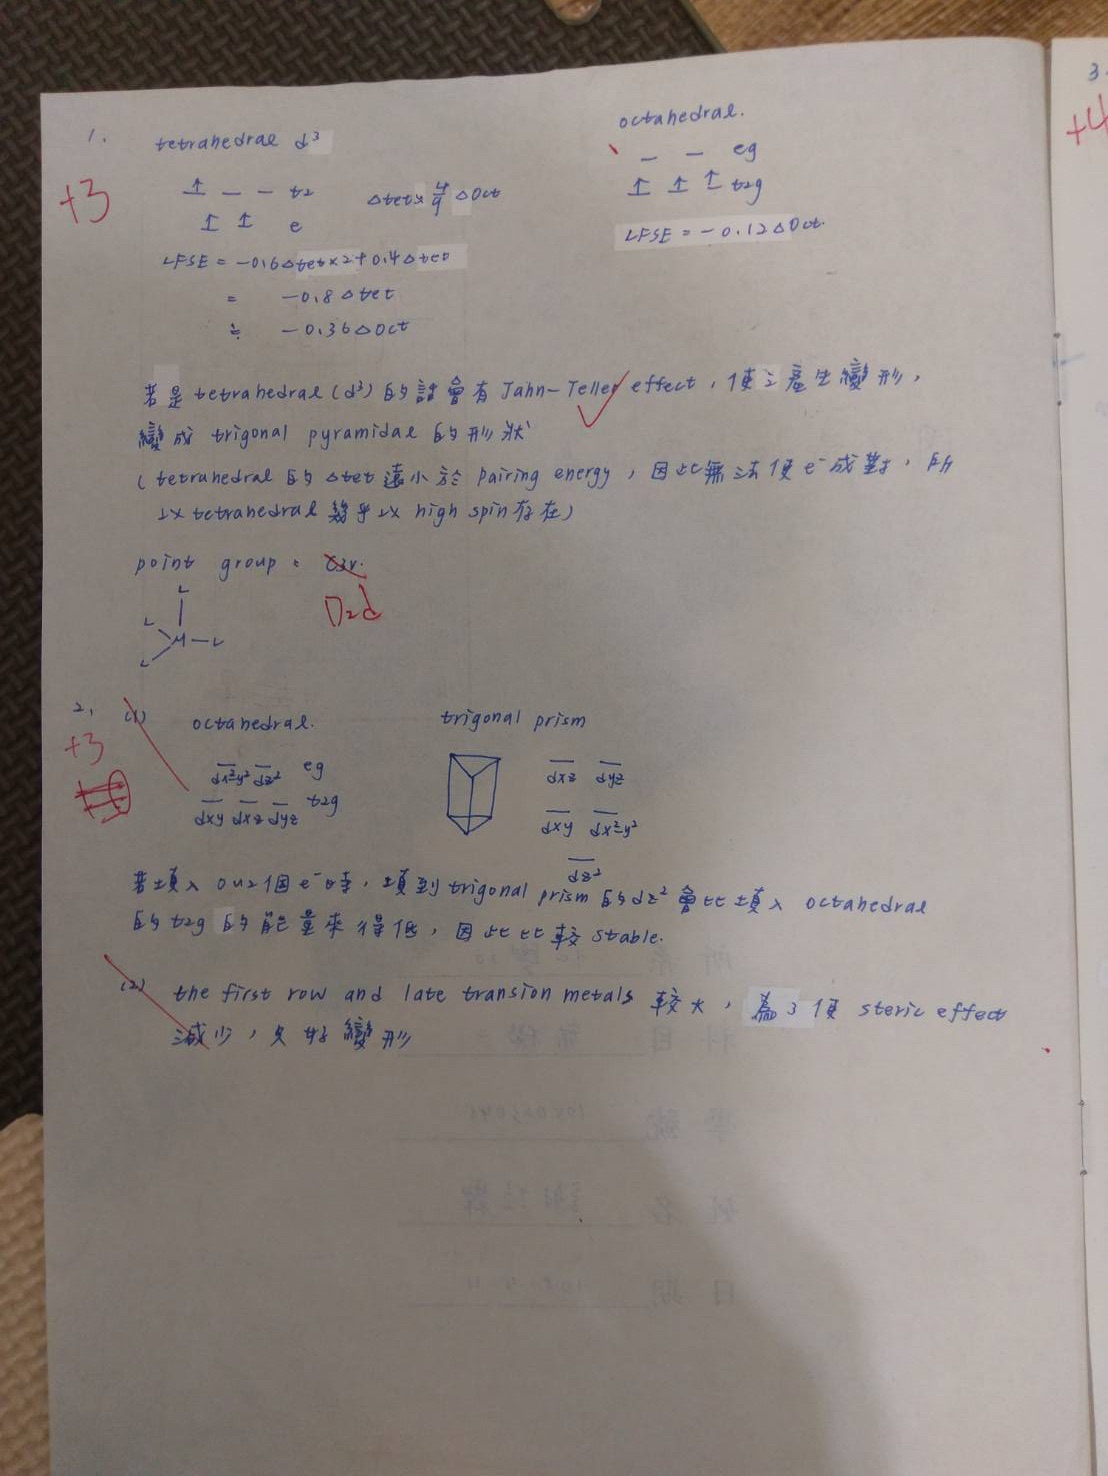 1.
tetrahedral d³
octahedral.
+3
↑ — — t2
↑ ↑ e
Δtet ≈ 4/9 Δoct
— — eg
↑ ↑ ↑ t2g
LFSE = -0.12Δoct.
LFSE = -0.6Δtet×2+0.4Δtet
= -0.8Δtet
≒ -0.36Δoct
若是 tetrahedral (d³) 的話會有 Jahn-Teller effect, 使之產生變形,
變成 trigonal pyramidal 的形狀
(tetrahedral 的 Δtet 遠小於 pairing energy, 因此無法使 e⁻ 成對, 所
以 tetrahedral 幾乎以 high spin 存在)
point group : C3v.
D2d
L
L M — L
L
2. (1)
octahedral.
trigonal prism
+3
dx²-y² dz² eg
dxy dxz dyz t2g
dxz dyz
dxy dx²-y²
dz²
若填入 0~2個 e⁻ 時, 填到 trigonal prism 的 dz² 會比填入 octahedral
的 t2g 的能量來得低, 因此比較 stable.
(2) the first row and late transion metals 較大, 為了使 steric effect
減少, 只好變形
3.
+4